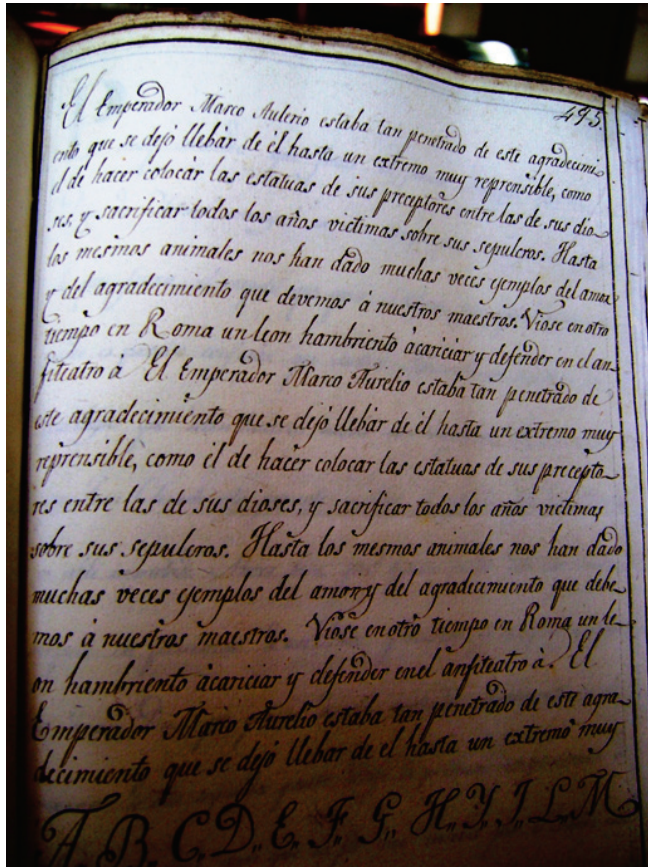 495.
El Emperador Marco Aulerio estaba tan penetrado de este agradecimi
ento que se dejó llebàr de él hasta un extremo muy reprensible, como
el de hacer colocàr las estatuas de sus preceptores entre las de sus dio
ses, y sacrificar todos los años victimas sobre sus sepulcros. Hasta
los mesmos animales nos han dado muchas veces ejemplos del amor
y del agradecimiento que devemos à nuestros maestros. Viose en otro
tiempo en Roma un leon hambriento àcariciar y defender en el an
fiteatro à El Emperador Marco Aurelio estaba tan penetrado de
este agradecimiento que se dejó llebàr de èl hasta un extremo muy
reprensible, como èl de hacer colocar las estatuas de sus precepto
res entre las de sus dioses, y sacrificar todos los años victimas
sobre sus sepulcros. Hasta los mesmos animales nos han dado
muchas veces ejemplos del amor y del agradecimiento que debe
mos à nuestros maestros. Viose en otro tiempo en Roma un le
on hambriento àcariciar y defender en el anfiteatro à. El
Emperador Marco Aurelio estaba tan penetrado de este agra
decimiento que se dejó llebar de el hasta un extremo muy
A,, B,, C,, D,, E,, F,, G,, H,, Y,, J,, L,, M